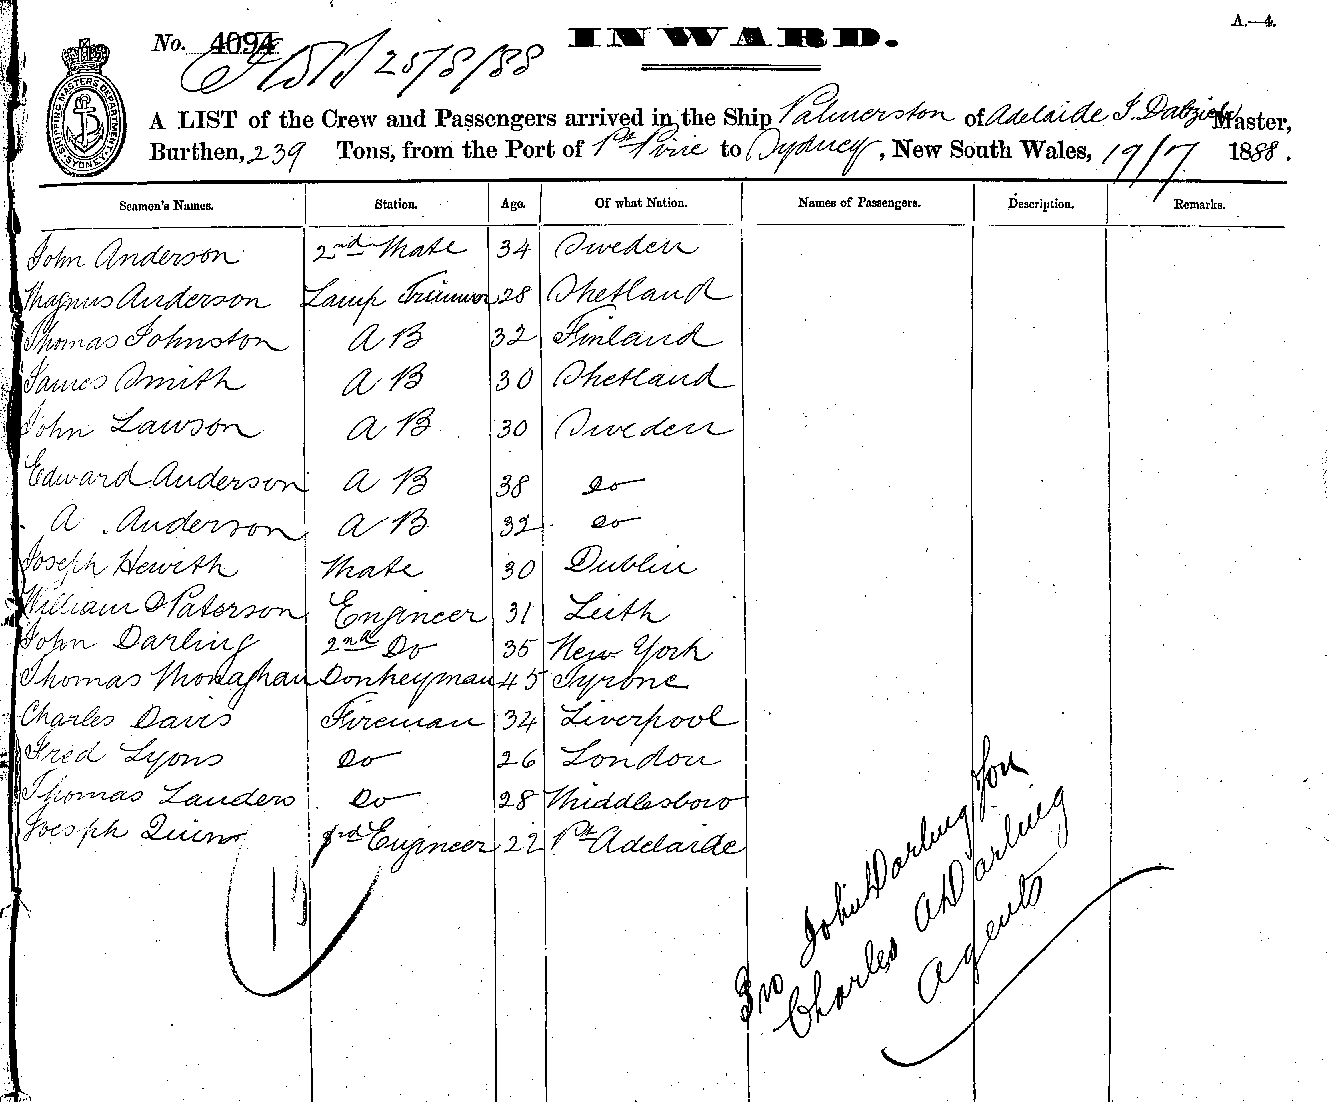 A.—4.
No. 4094 INWARD.
25/8/88
A LIST of the Crew and Passengers arrived in the Ship Palmerston of Adelaide J. Dalziel Master,
Burthen, 239 Tons, from the Port of Pt Pirie to Sydney, New South Wales, 19/7 1888.
SHIPPING MASTERS DEPARTMENT SYDNEY
Seamen's Names. Station. Age. Of what Nation. Names of Passengers. Description. Remarks.
John Anderson 2nd Mate 34 Sweden
Magnus Anderson Lamp Trimmer 28 Shetland
Thomas Johnston A B 32 Finland
James Smith A B 30 Shetland
John Lawson A B 30 Sweden
Edward Anderson A B 38 Do
A. Anderson A B 32 Do
Joseph Hewith Mate 30 Dublin
William Paterson Engineer 31 Leith
John Darling 2nd Do 35 New York
Thomas Monaghan Donkeyman 45 Tyrone
Charles Davis Fireman 34 Liverpool
Fred Lyons Do 26 London
Thomas Landers Do 28 Middlesboro
Joesph Quinn 3rd Engineer 22 Pt Adelaide
15
Pro John Darling Son
Charles A Darling
Agents